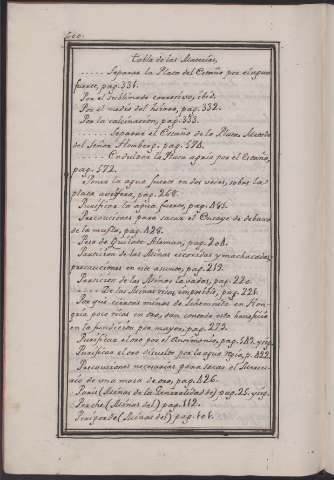 600.
Tabla de las Materias,
..... Separar la Plata del Estaño por el agua
fuerte, pag. 331.
Por el sublimado corrosivo, ibid.
Por el medio del hierro, pag. 332.
Por la calcinacion, pag. 333.
..... Separar el Estaño de la Plata, Metodo
del Señor Homberg, pag. 571.
..... Endulzar la Plata agria por el Estaño,
pag. 572.
Poner la agua fuerte en dos veces, sobre la
plata aurifera, pag. 268.
Purificar la agua fuerte, pag. 481.
Precauciones para sacar el Ensaye de debaxo
de la mufla, pag. 128.
Peso de Quilate Aleman, pag. 204.
Particion de las Minas escogidas y machacadas,
precauciones en este asunto, pag. 219.
Particion de las Minas lavadas, pag. 220.
..... De las Minas ricas, imposible, pag. 221.
Por qué ciertas minas de Schemnitz en Hon
gria poco ricas en oro, dan con todo este beneficio
en la fundicion por mayor, pag. 273.
Purificar el oro por el Antimonio, pag. 542. y sig.
Purificar el oro disuelto por la agua regia, p. 422.
Precauciones necesarias para sacar el
de una masa de oro, pag. 426.
(Minas de la Generalidad de) pag. 25. y sig.
Perche (Minas del) pag. 112.
Perigord (Minas del) pag. 101.